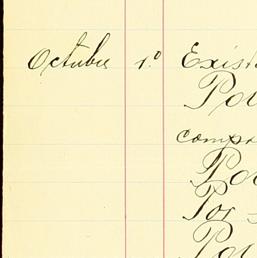 Octubre 1.º Exist
Po
compr
Po
Por
Po